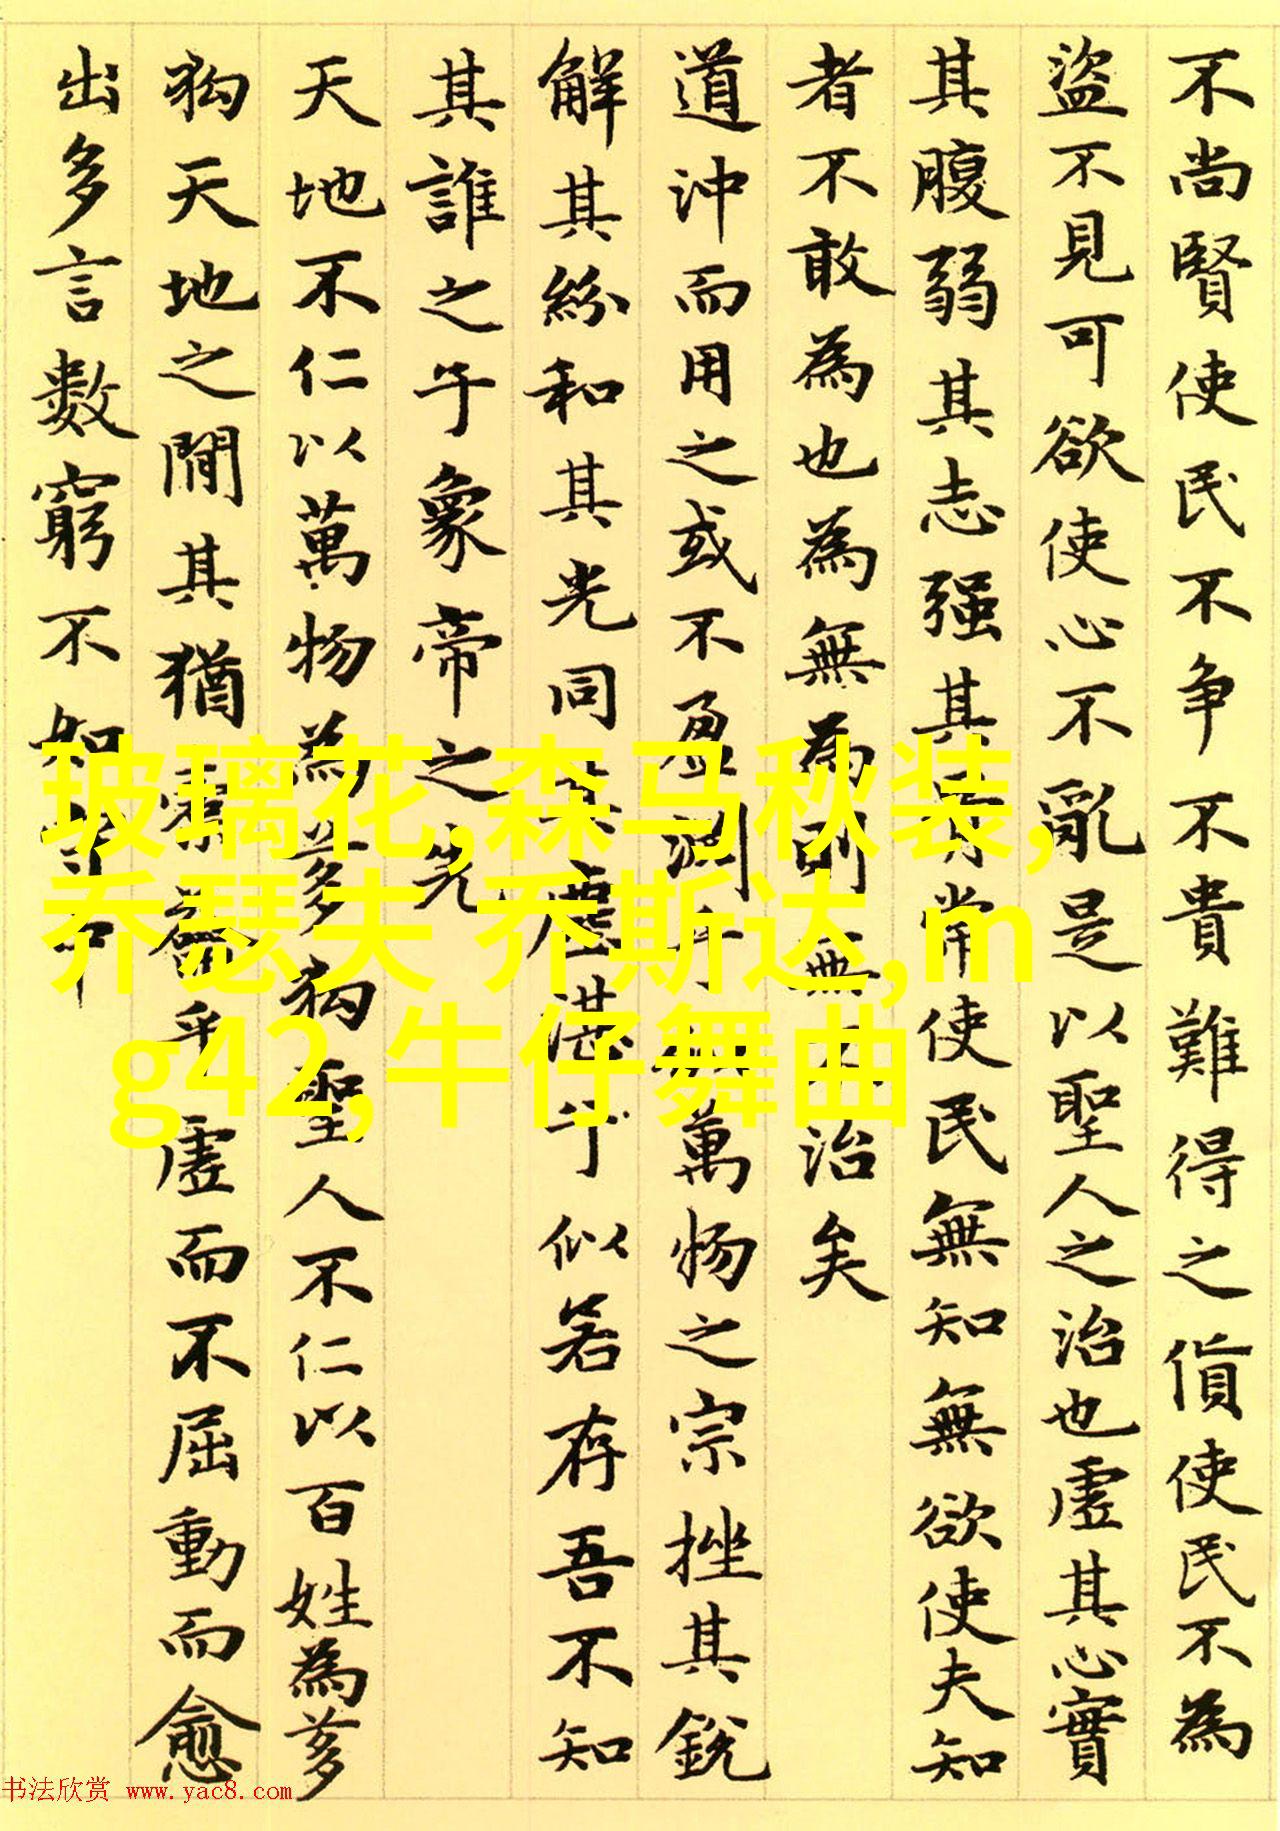 不尚賢使民不争不貴難得之貨使民不為
盜不見可欲使心不亂是以聖人之治也虛其心實
其腹弱其志强其常使民無知無欲使夫知
者不敢為也為無為則無不治矣
道沖而用之或不盈淵乎萬物之宗挫其銳
解其紛和其光同其塵湛乎似若存吾不知
其誰之子象帝之先
天地不仁以萬物為芻狗聖人不仁以百姓為芻
狗天地之間其猶橐籥乎虛而不屈動而愈
出多言數窮不如守中
玻璃花,森马秋装,
乔瑟夫 乔斯达,m
g42,牛仔舞曲
书法欣赏 www.yac8.com